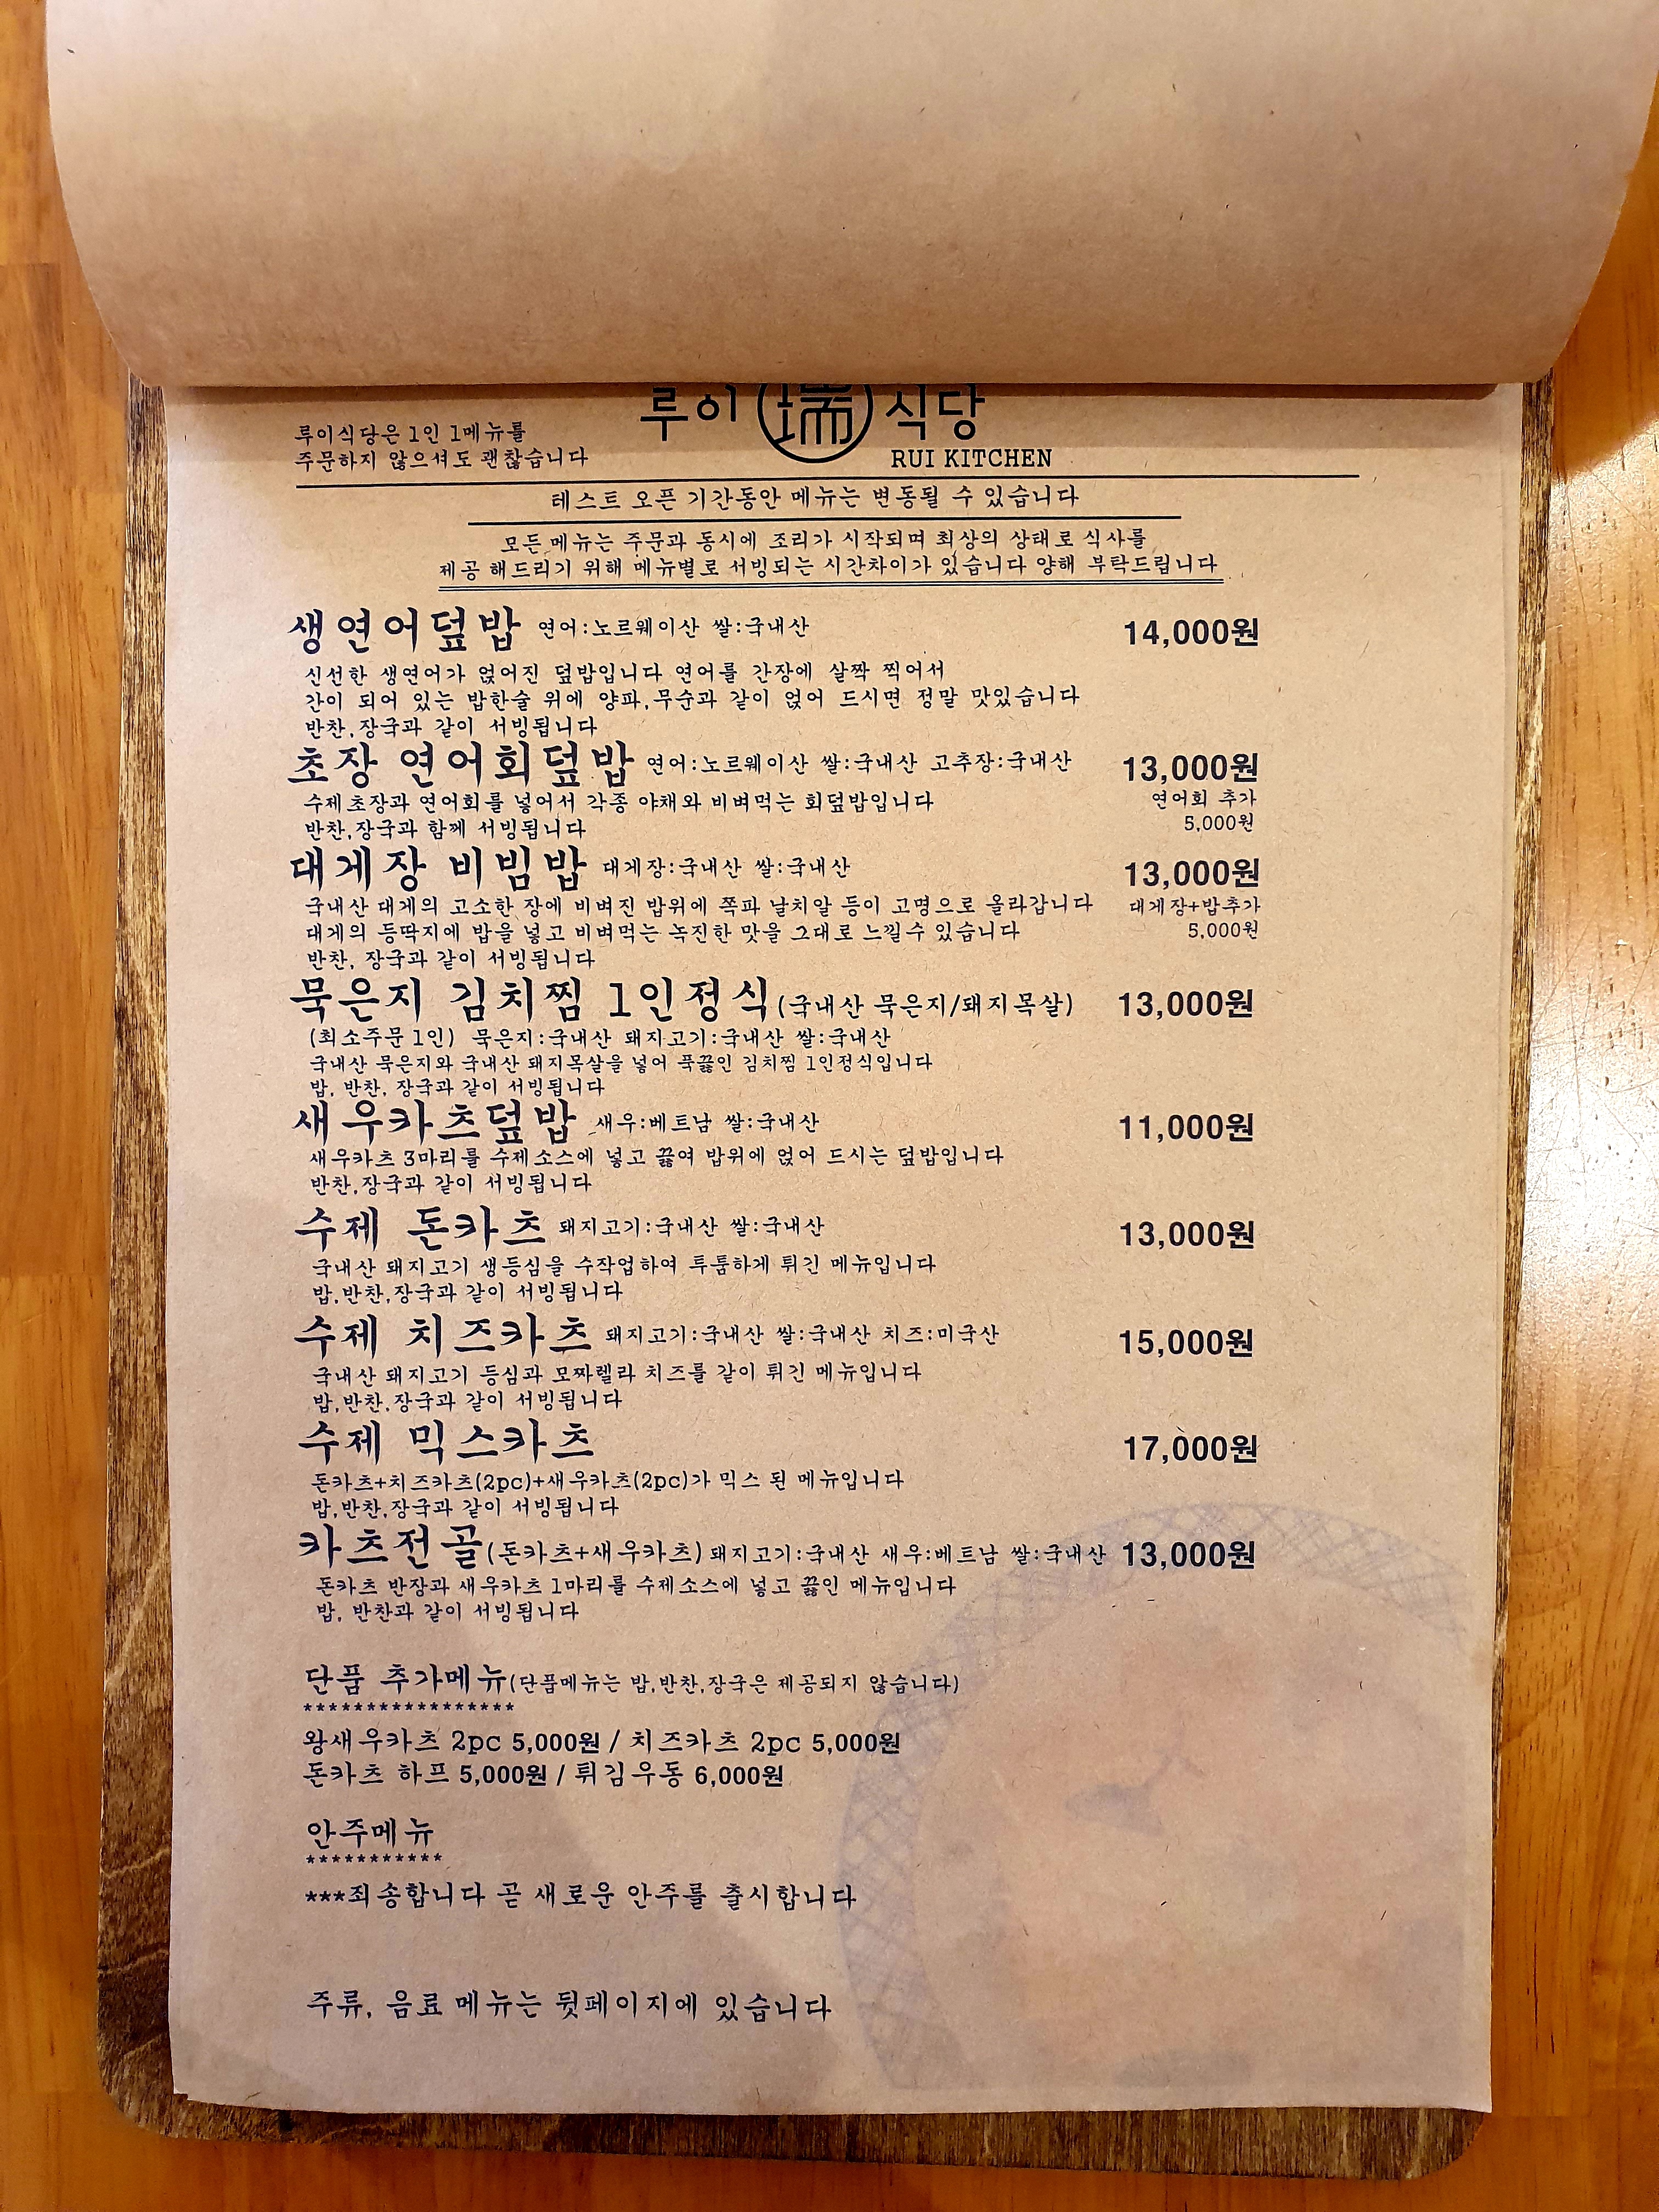 루이 瑞 식당
RUI KITCHEN
루이식당은 1인 1메뉴를
주문하지 않으셔도 괜찮습니다
테스트 오픈 기간동안 메뉴는 변동될 수 있습니다
모든 메뉴는 주문과 동시에 조리가 시작되며 최상의 상태로 식사를
제공 해드리기 위해 메뉴별로 서빙되는 시간차이가 있습니다 양해 부탁드립니다
생연어덮밥 연어:노르웨이산 쌀:국내산 14,000원
신선한 생연어가 얹어진 덮밥입니다 연어를 간장에 살짝 찍어서
간이 되어 있는 밥한술 위에 양파,무순과 같이 얹어 드시면 정말 맛있습니다
반찬,장국과 같이 서빙됩니다
초장 연어회덮밥 연어:노르웨이산 쌀:국내산 고추장:국내산 13,000원
수제초장과 연어회를 넣어서 각종 야채와 비벼먹는 회덮밥입니다 연어회 추가
반찬,장국과 함께 서빙됩니다 5,000원
대게장 비빔밥 대게장:국내산 쌀:국내산 13,000원
국내산 대게의 고소한 장에 비벼진 밥위에 쪽파 날치알 등이 고명으로 올라갑니다 대게장+밥추가
대게의 등딱지에 밥을 넣고 비벼먹는 녹진한 맛을 그대로 느낄수 있습니다 5,000원
반찬, 장국과 같이 서빙됩니다
묵은지 김치찜 1인정식(국내산 묵은지/돼지목살) 13,000원
(최소주문1인) 묵은지:국내산 돼지고기:국내산 쌀:국내산
국내산 묵은지와 국내산 돼지목살을 넣어 푹끓인 김치찜 1인정식입니다
밥, 반찬, 장국과 같이 서빙됩니다
새우카츠덮밥 새우:베트남 쌀:국내산 11,000원
새우카츠 3마리를 수제소스에 넣고 끓여 밥위에 얹어 드시는 덮밥입니다
반찬,장국과 같이 서빙됩니다
수제 돈카츠 돼지고기:국내산 쌀:국내산 13,000원
국내산 돼지고기 생등심을 수작업하여 투툼하게 튀긴 메뉴입니다
밥,반찬,장국과 같이 서빙됩니다
수제 치즈카츠 돼지고기:국내산 쌀:국내산 치즈:미국산 15,000원
국내산 돼지고기 등심과 모짜렐라 치즈를 같이 튀긴 메뉴입니다
밥,반찬,장국과 같이 서빙됩니다
수제 믹스카츠 17,000원
돈카츠+치즈카츠(2pc)+새우카츠(2pc)가 믹스 된 메뉴입니다
밥,반찬,장국과 같이 서빙됩니다
카츠전골(돈카츠+새우카츠) 돼지고기:국내산 새우:베트남 쌀:국내산 13,000원
돈카츠 반장과 새우카츠 1마리를 수제소스에 넣고 끓인 메뉴입니다
밥, 반찬과 같이 서빙됩니다
단품 추가메뉴(단품메뉴는 밥,반찬,장국은 제공되지 않습니다)
*****************
왕새우카츠 2pc 5,000원 / 치즈카츠 2pc 5,000원
돈카츠 하프 5,000원 / 튀김우동 6,000원
안주메뉴
***********
***죄송합니다 곧 새로운 안주를 출시합니다
주류, 음료 메뉴는 뒷페이지에 있습니다